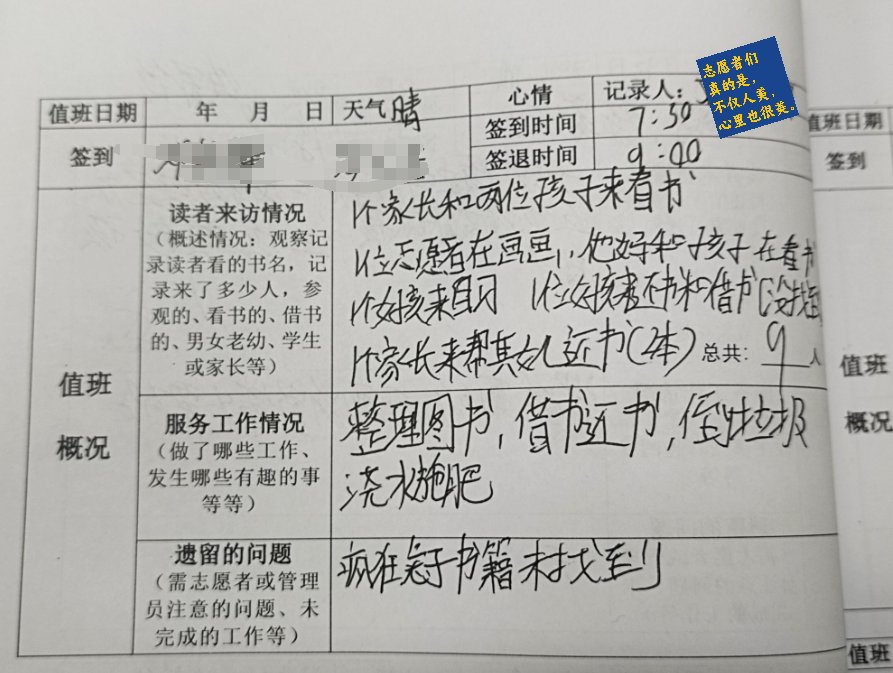 志愿者们
真的是，
不仅人美，
心里也很美。
值班日期 年 月 日 天气 晴 心情 记录人：
签到 签到时间 7:30
签退时间 9:00
值班
概况
读者来访情况
（概述情况：观察记
录读者看的书名，记
录来了多少人，参
观的、看书的、借书
的、男女老幼、学生
或家长等）
1个家长和两位孩子来看书
1位志愿者在画画，他妈和孩子在看书
1个女孩来自习 1位女孩来还书和借书（没找到
1个家长来帮其女儿还书（2本） 总共：9人
服务工作情况
（做了哪些工作、
发生哪些有趣的事
等等）
整理图书，借书还书，倒垃圾
浇水施肥
遗留的问题
（需志愿者或管理
员注意的问题、未
完成的工作等）
疯狂 书籍未找到
值班日期
签到
值班
概况
值班